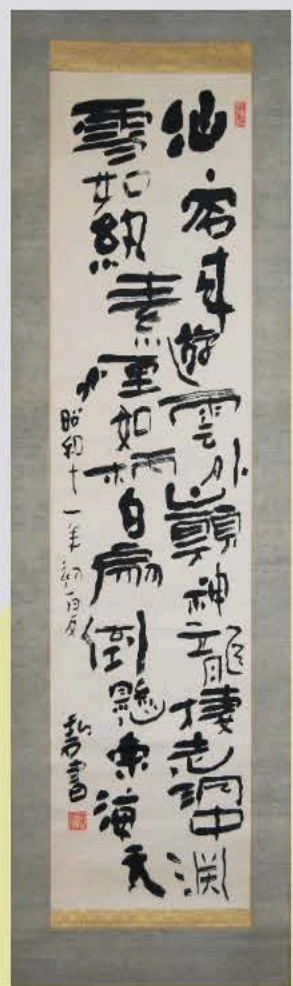 仙客来遊雲外巓神龍棲老洞中淵
雪如紈素煙如柄白扇倒懸東海天
昭和十一年初夏 碧書